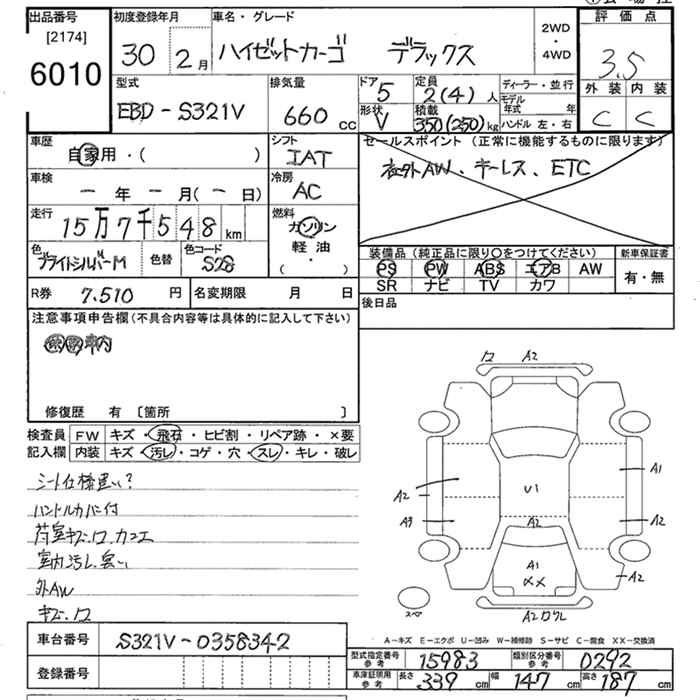 出品番号
[2174]
6010
初度登録年月
30 2月
車名・グレード
ハイゼットカーゴ デラックス
2WD
・
4WD
評価点
3.5
外装 内装
C C
型式
EBD-S321V
排気量
660 cc
ドア 5
定員 2(4)人
形状 V
積載 350(250)kg
ディーラー・並行
モデル年式 年
ハンドル 左・右
車歴
自家用・( )
シフト
IAT
セールスポイント (正常に機能するものに限ります)
社外AW、キーレス、ETC
車検
ー年ー月(ー日)
冷房
AC
走行
15万7千548km
燃料
ガソリン
軽油
( ・ )
色
ブライトシルバーM
色替
色コード
S28
装備品(純正品に限り○をつけてください)
PS PW ABS エアB AW
SR ナビ TV カワ
新車保証書
有・無
R券 7.510円
名変期限 月 日
後日品
注意事項申告欄(不具合内容等は具体的に記入して下さい)
車内
修復歴 有 [箇所 ]
検査員
記入欄
FW キズ・飛石・ヒビ割・リペア跡・×要
内装 キズ・汚レ・コゲ・穴・スレ・キレ・破レ
シート仕様違い?
ハンドルカバー付
荷室キズ、ワ、カコエ
室内汚レ、臭い
外AW
キズ・ワ
ワ A2
A1
A2
U1
A3
A2
A2
A1
XX
A2
スペア
A2ワウレ
車台番号 S321V-0358342
登録番号
A-キズ E-エクボ U-凹み W-補修跡 S-サビ C-腐食 XX-交換済
型式指定番号
参考
15983
類別区分番号
参考
0292
車庫証明用
参考
長さ 339cm 幅 147cm 高さ 187cm